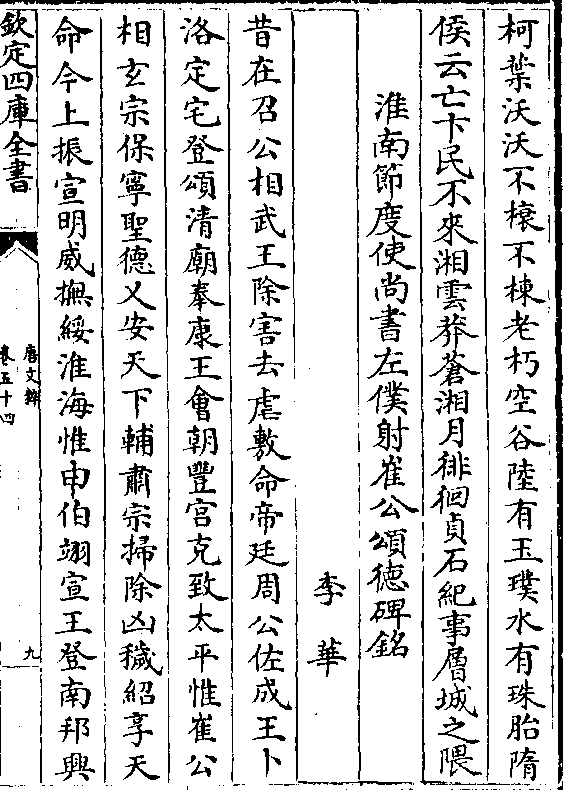 柯葉沃沃不榱不棟老朽空谷陸有玉璞水有珠胎隋
侯云亡卞民不來湘雲莽蒼湘月徘徊貞石紀事層城之隈
淮南節度使尚書左僕射崔公頌德碑銘
李華
昔在召公相武王除害去虐敷命帝廷周公佐成王卜
洛定宅登頌清廟奉康王會朝豐宮克致太平惟崔公
相玄宗保寧聖德乂安天下輔肅宗掃除凶穢紹享天
命今上振宣明威撫綏淮海惟申伯翊宣王登南邦興
欽定四庫全書
唐文粹
卷五十四
九